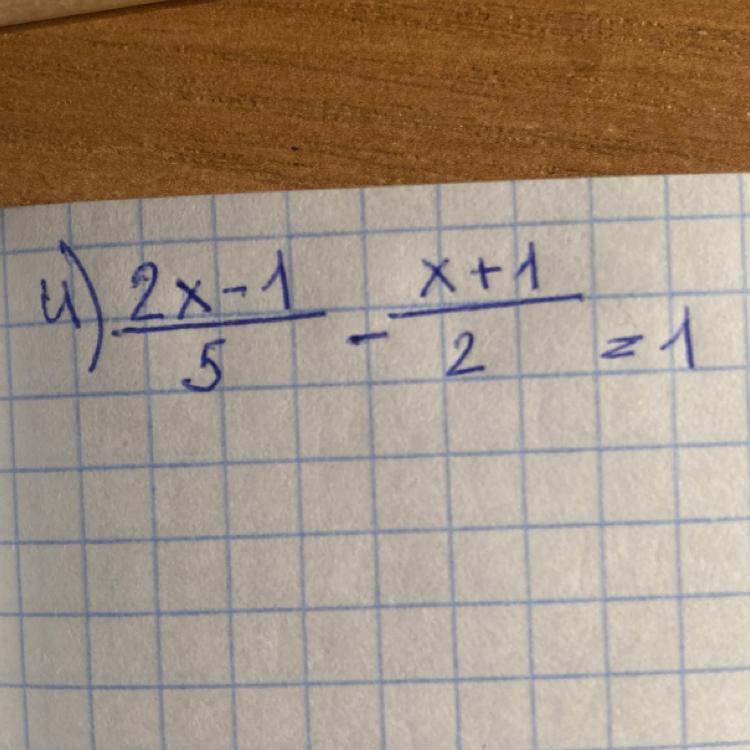 и) (2x-1)/5 - (x+1)/2 = 1